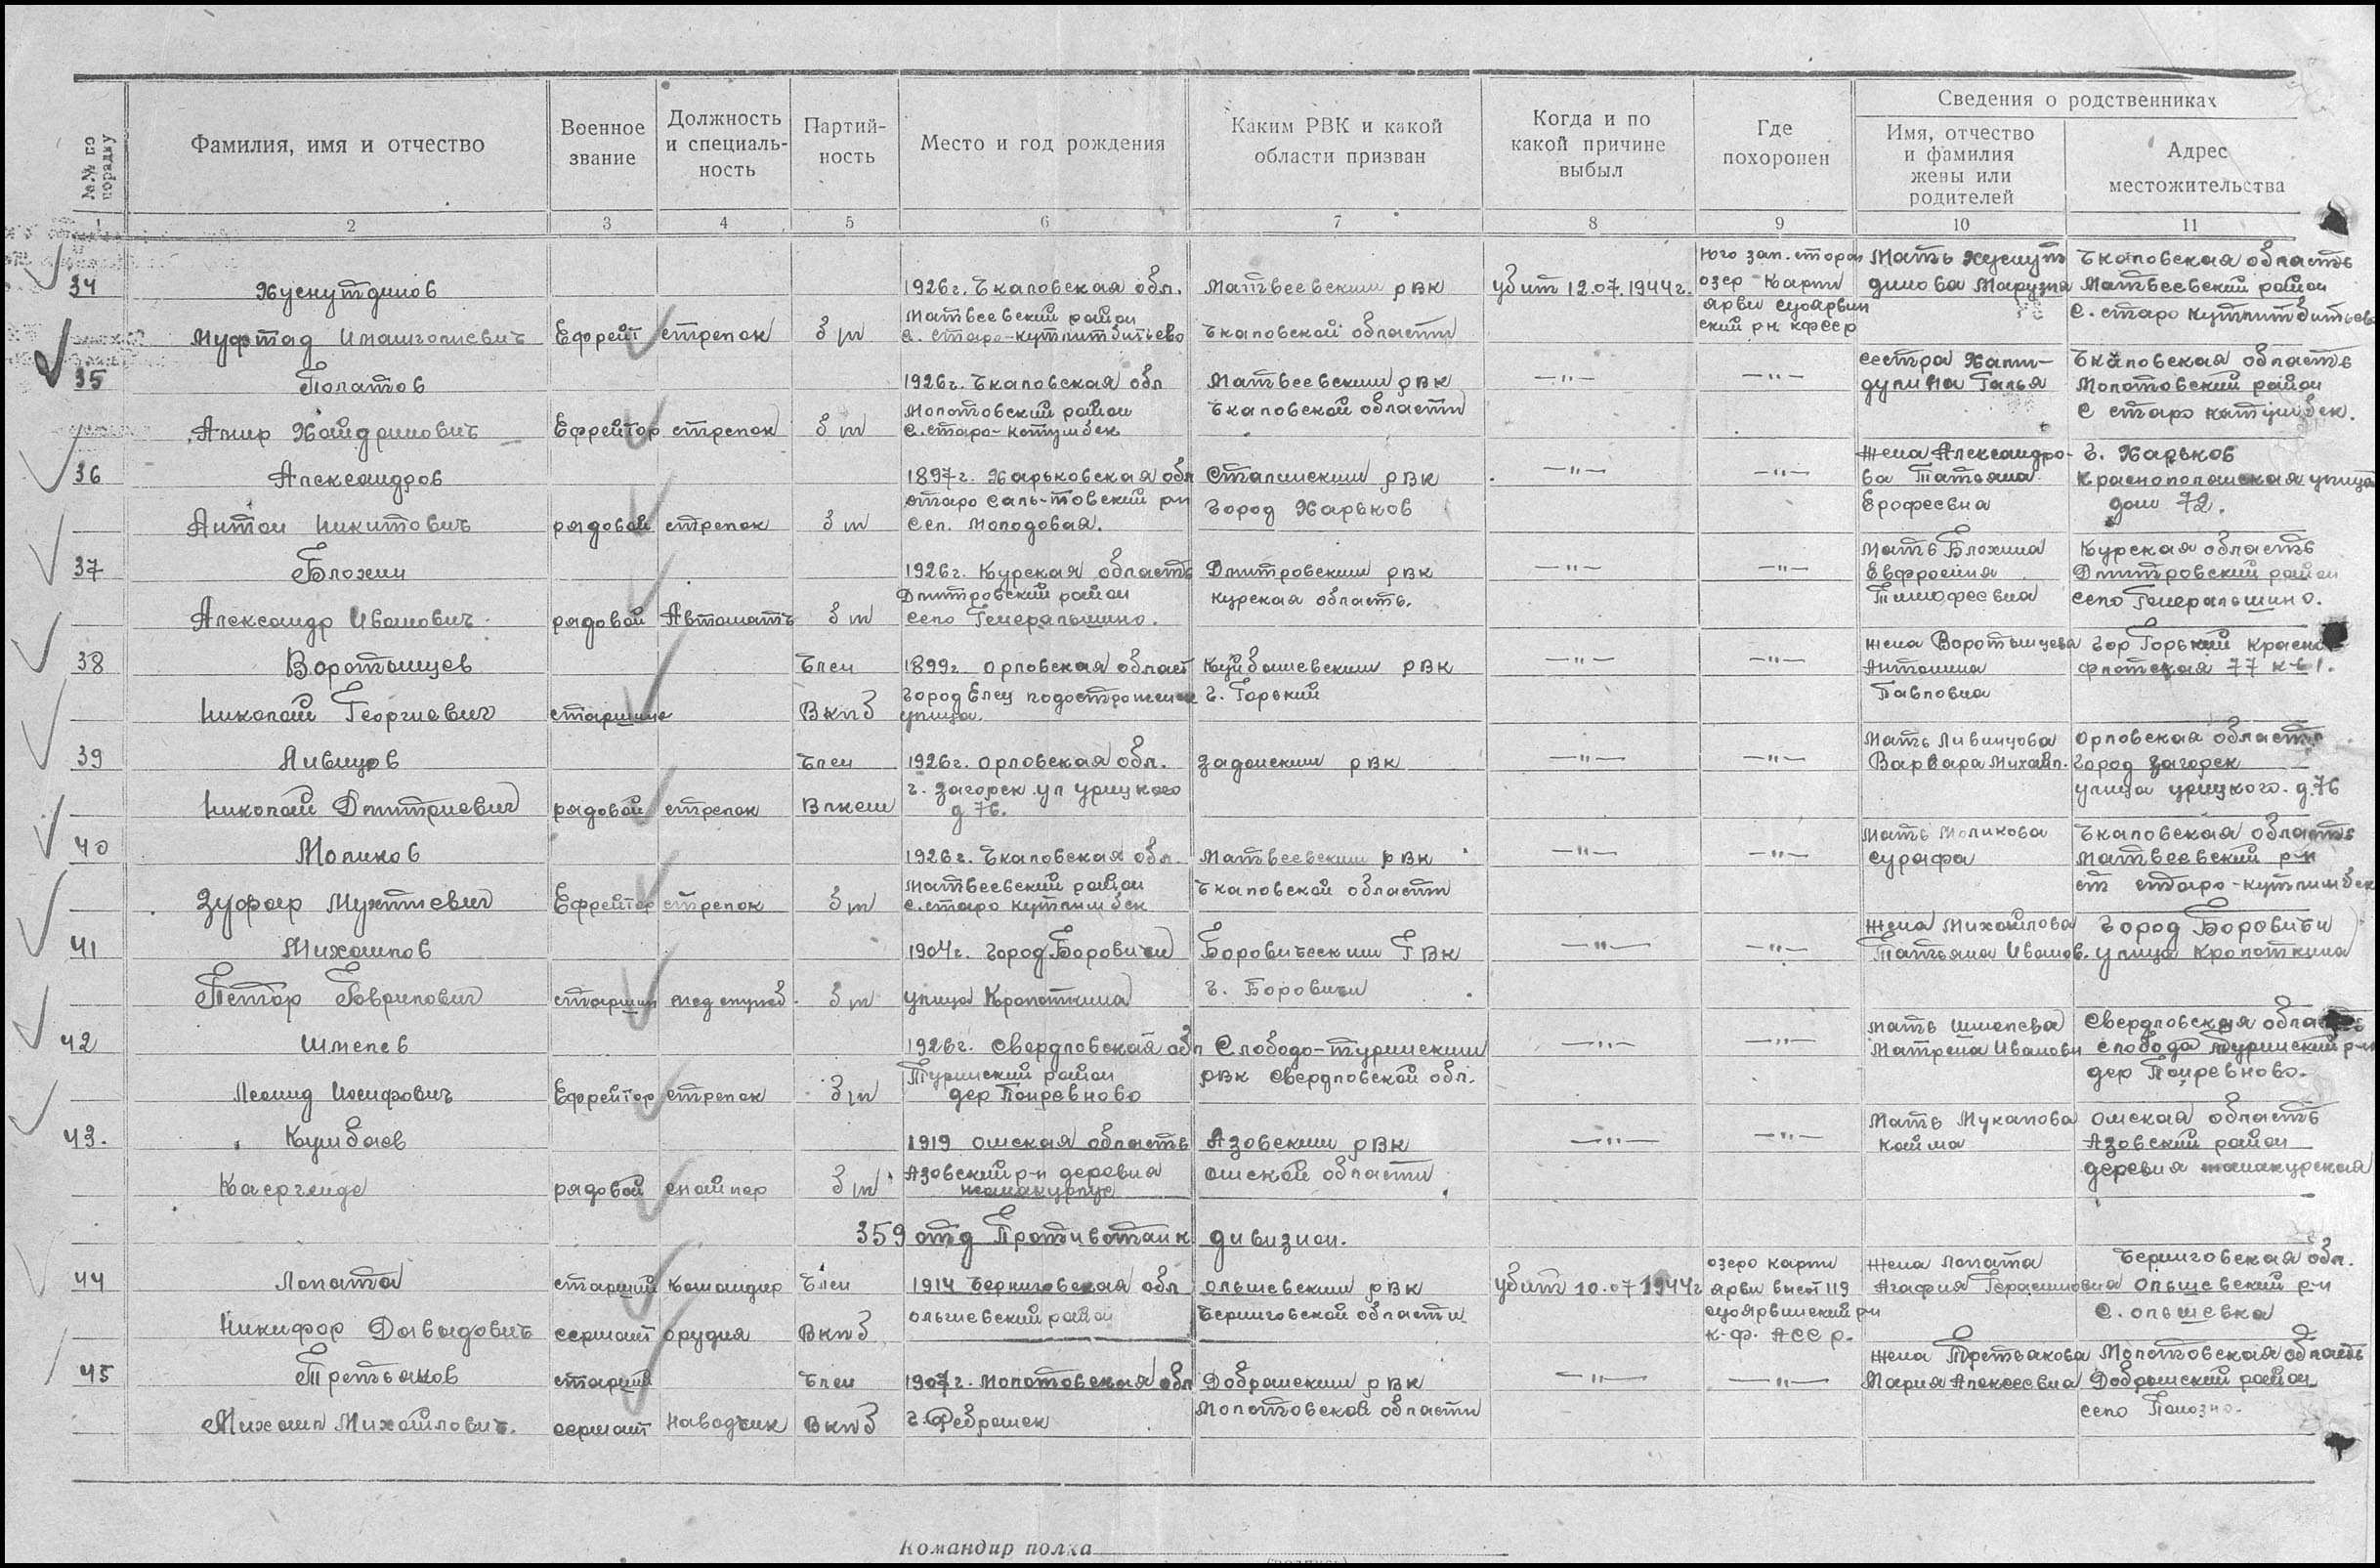 №№ по порядку
Фамилия, имя и отчество
Военное звание
Должность и специаль-ность
Партий-ность
Место и год рождения
Каким РВК и какой области призван
Когда и по какой причине выбыл
Где похоронен
Сведения о родственниках
Имя, отчество и фамилия жены или родителей
Адрес местожительства
1 2 3 4 5 6 7 8 9 10 11
34 Хуснутдинов 1926г. Чкаловская обл. Матвеевским РВК убит 12.07.1944г. Юго зап. сторон Мать Хуснут Чкаловская область
озер Карти динова Матвеевский район
Ефрейт стрелок б/п Матвеевский район с. старо- Чкаловской области ярви суоярвин ский рн КФССР с. старо
35 Полатов 1926г. Чкаловская обл Матвеевским РВК —"— —"— сестра Чкаловская область
Молотовский район
Ефрейтор стрелок б/п Молотовский район с. старо- Чкаловской области с старо
36 Александров 1897г. Харьковская обл Сталинским РВК —"— —"— жена Александро- г. Харьков
ва Татьяна Краснополянская улица
Антон Никитович рядовой стрелок б/п старо Саль-товский рн Сел. Молодовая. город Харьков Ерофеевна дом 72.
37 Блохин 1926г. Курская область Дмитровским РВК —"— —"— Мать Блохина Курская область
Евфросиния Дмитровский район
Александр Иванович рядовой Автоматч б/п Дмитровский район село Генеральшино. курская область. Тимофеевна село Генеральшино.
38 Воротынцев Член 1899г. Орловская област Куйбышевским РВК —"— —"— жена Воротынцева гор Горький Красно
Антонина флотская 77 кв 1.
Николай Георгиевич старшина ВКПБ город Елец улица. г. Горький Павловна
39 Ливинцов Член 1926г. Орловская обл. Задонским РВК —"— —"— Мать Ливинцова Орловская область
Варвара Михайл. город Загорск
Николай Дмитриевич рядовой стрелок Влксм г. Загорск ул урицкого д 76. улица урицкого. д.76
40 Маликов 1926г. Чкаловская обл. Матвеевским РВК —"— —"— Мать Маликова Чкаловская область
сурафа Матвеевский р-н
Зуфар Ефрейтор стрелок б/п Матвеевский район с. старо Чкаловской области
41 Михайлов 1904г. город Боровичи Боровическим ГВК —"— —"— Жена Михайлова город Боровичи
Татьяна Иванов. улица Кропоткина
Петор Гаврилович старшин б/п улица Кропоткина г. Боровичи
42 Шмелев 1926г. Свердловская обл Слободо-туринским —"— —"— Мать Шмелева Свердловская область
Матрена Ивановн слобода Туринский р-н
Леонид Иосифович Ефрейтор стрелок б/п Туринский район дер РВК Свердловской обл. дер
43. 1919 Омская область Азовским РВК —"— —"— Мать Мукапова Омская область
Азовский район
рядовой снайпер б/п Азовский р-н деревня Омской области деревня
359 отд Противотанк дивизион.
44 Лопата старший Командир Член 1914 Черниговская обл Олышевским РВК убит 10.07 1944г озеро карти жена Лопата Черниговская обл.
ярви высот 119 Агафия Герасимовна Олышевский р-н
Никифор Давыдович сержант орудия ВКПБ Олышевский район Черниговской области суоярвинский рн с. олышевка
к-ф. АССР.
45 Третьяков старший Член 1907г. Молотовская обл Добрянским РВК —"— —"— Жена Третьякова Молотовская область
Мария Алексеевна Добрянский район
Михаил Михайлович. сержант Наводчик ВКПБ Молотовской области село
Командир полка